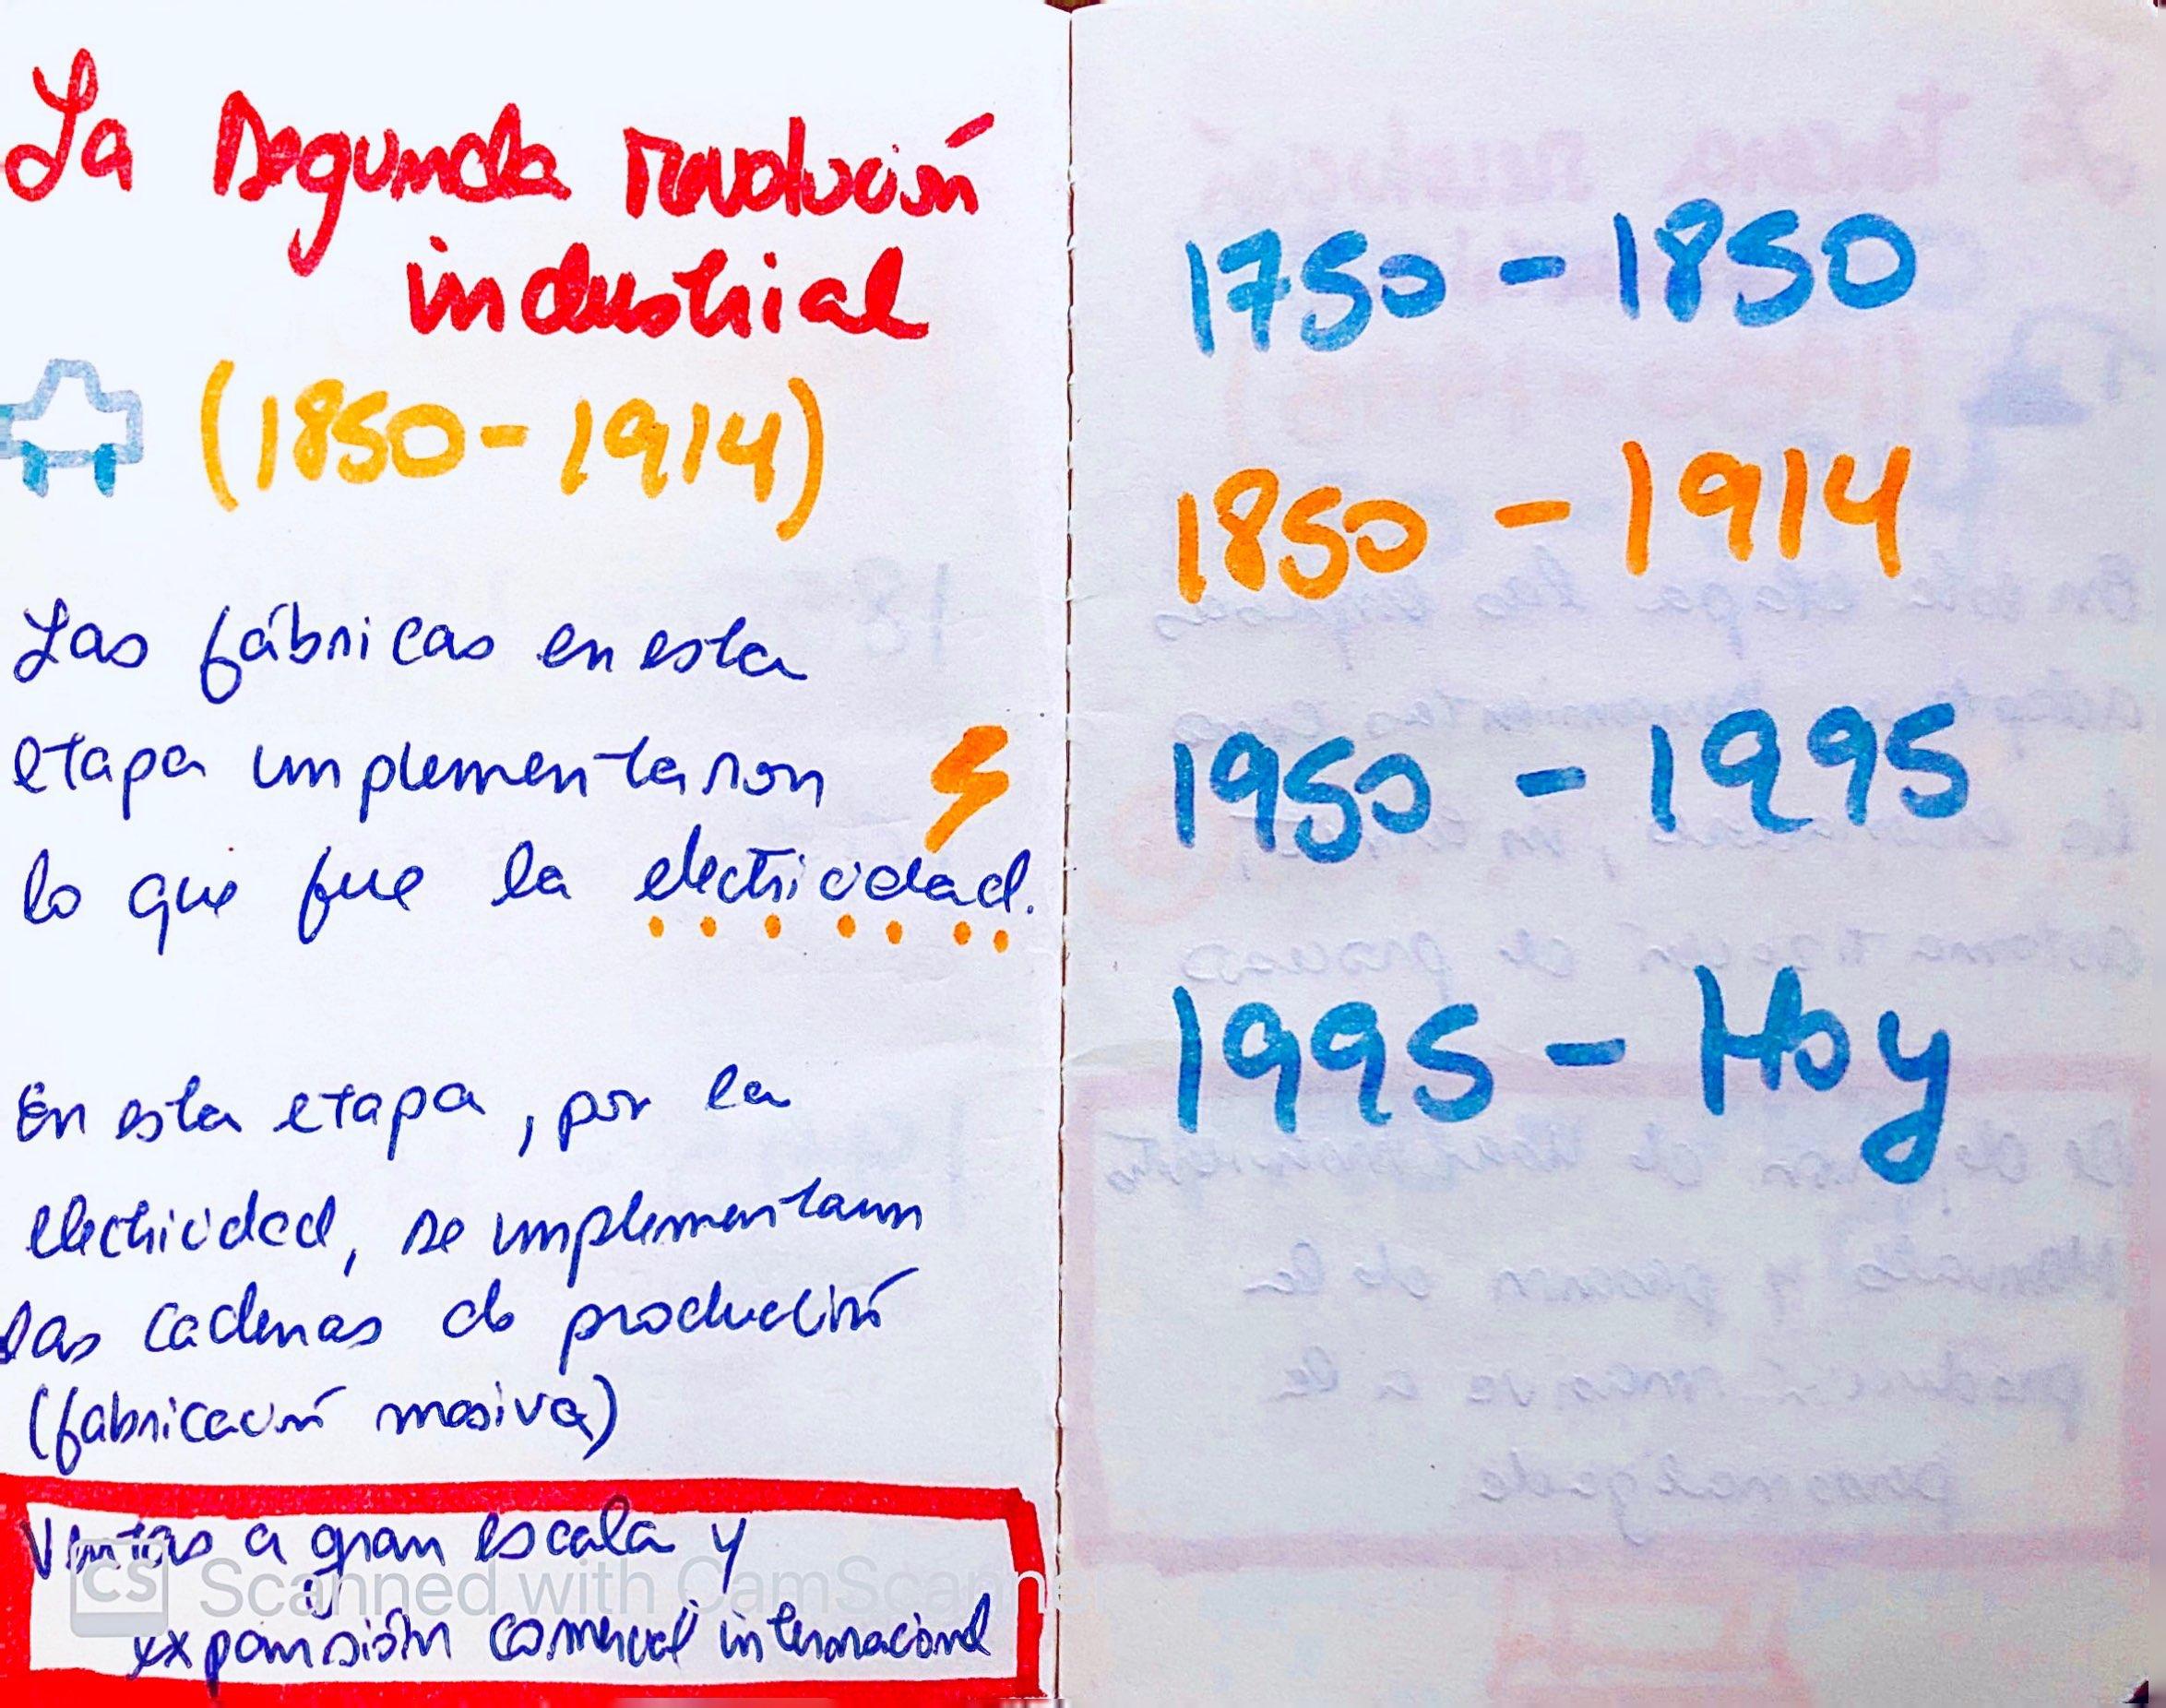 La segunda revolución
industrial
(1850-1914)
Las fábricas en esta
etapa implementaron
lo que fue la electricidad.
En esta etapa, por la
electricidad, se implementaron
las cadenas de producción
(fabricación masiva)
Ventas a gran escala y
expansión comercial internacional
CS Scanned with CamScanner
1750 - 1850
1850 - 1914
1950 - 1995
1995 - Hoy